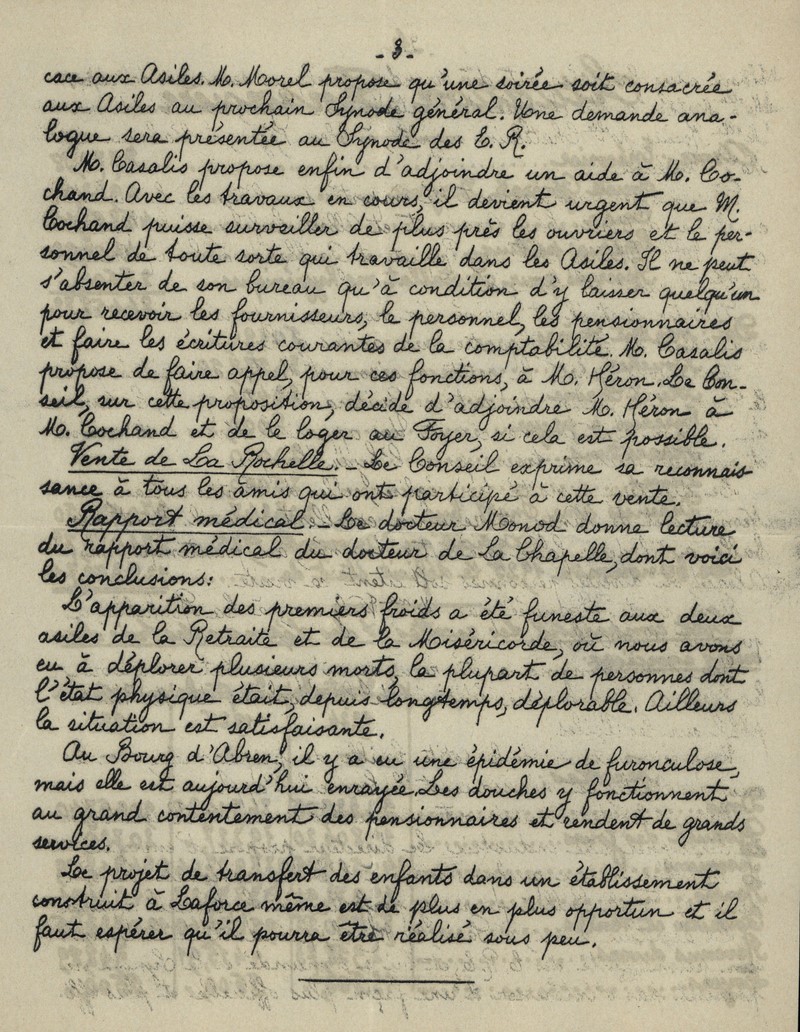 - 3 -
cace aux Asiles. M. Morel propose qu'une soirée soit consacrée
aux Asiles au prochain Synode général. Une demande ana-
logue sera présentée au Synode des E. R.
M. Casalis propose enfin d'adjoindre un aide à M. Co-
chand. Avec les travaux en cours, il devient urgent que M.
Cochand puisse surveiller de plus près les ouvriers et le per-
sonnel de toute sorte qui travaille dans les Asiles. Il ne peut
s'absenter de son bureau qu'à condition d'y laisser quelqu'un
pour recevoir les fournisseurs, le personnel, les pensionnaires
et faire les écritures courantes de la comptabilité. M. Casalis
propose de faire appel, pour ces fonctions, à M. Héron. Le Con-
seil, sur cette proposition, décide d'adjoindre M. Héron à
M. Cochand et de le loger au Foyer, si cela est possible.
Vente de La Rochelle. - Le Conseil exprime sa reconnais-
sance à tous les amis qui ont participé à cette vente.
Rapport médical. - Le docteur Monod donne lecture
du rapport médical du docteur de La Chapelle, dont voici
les conclusions:
L'apparition des premiers froids a été funeste aux deux
asiles de la Retraite et de la Miséricorde, où nous avons
eu à déplorer plusieurs morts, la plupart de personnes dont
l'état physique était, depuis longtemps, déplorable. Ailleurs
la situation est satisfaisante.
Au Bourg d'Abren, il y a eu une épidémie de furonculose,
mais elle est aujourd'hui enrayée. Les douches y fonctionnent
au grand contentement des pensionnaires et rendent de grands
services.
Le projet de transfert des enfants dans un établissement
construit à Laforce même est de plus en plus opportun et il
faut espérer qu'il pourra être réalisé sous peu.